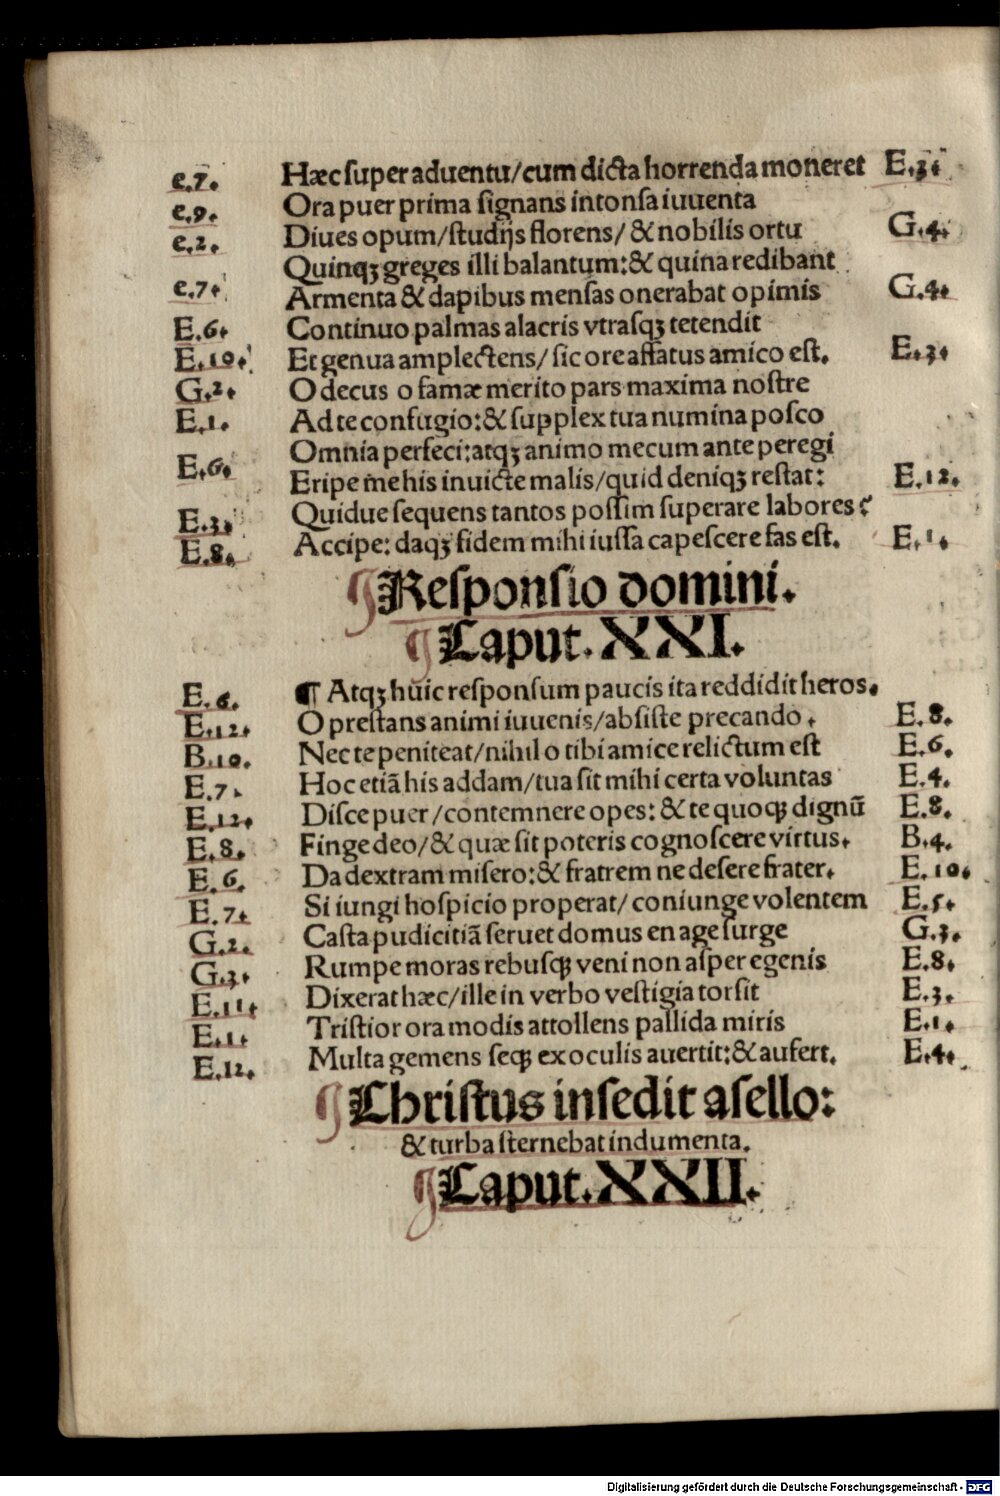 e.7. Hæc super aduentu/cum dicta horrenda moneret E.3.
e.9. Ora puer prima signans intonsa iuuenta
e.2. Diues opum/studijs florens/&nobilis ortu G.4.
Quinqꝫ greges illi balantum:& quina redibant
e.7. Armenta & dapibus mensas onerabat opimis G.4.
E.6. Continuo palmas alacris vtrasqꝫ tetendit
E.10. Et genua amplectens/sic ore affatus amico est. E.3.
G.2. O decus o famæ merito pars maxima nostre
E.1. Ad te confugio:& supplex tua numina posco
Omnia perfeci:atqꝫ animo mecum ante peregi
E.6. Eripe me his inuicte malis/quid deniqꝫ restat: E.12.
E.3. Quidue sequens tantos possim superare labores?
E.8. Accipe: daqꝫ fidem mihi iussa capescere fas est. E.1.
Responsio domini.
Caput. XXI.
E.6. ¶ Atqꝫ huic responsum paucis ita reddidit heros.
E.12. O prestans animi iuuenis/absiste precando. E.8.
B.10. Nec te peniteat/nihil o tibi amice relictum est E.6.
E.7. Hoc etiā his addam/tua sit mihi certa voluntas E.4.
E.12. Disce puer/contemnere opes: & te quoqꝫ dignū E.8.
E.8. Finge deo/& quæ sit poteris cognoscere virtus. B.4.
E.6. Da dextram misero:& fratrem ne desere frater. E.10.
E.7. Si iungi hospicio properat/coniunge volentem E.5.
G.2. Casta pudicitiā seruet domus en age surge G.3.
G.3. Rumpe moras rebusqꝫ veni non asper egenis E.8.
E.11. Dixerat hæc/ille in verbo vestigia torsit E.3.
E.1. Tristior ora modis attollens pallida miris E.1.
E.12. Multa gemens seqꝫ ex oculis auertit:& aufert. E.4.
Christus insedit asello:
& turba sternebat indumenta.
Caput. XXII.
Digitalisierung gefördert durch die Deutsche Forschungsgemeinschaft - DFG